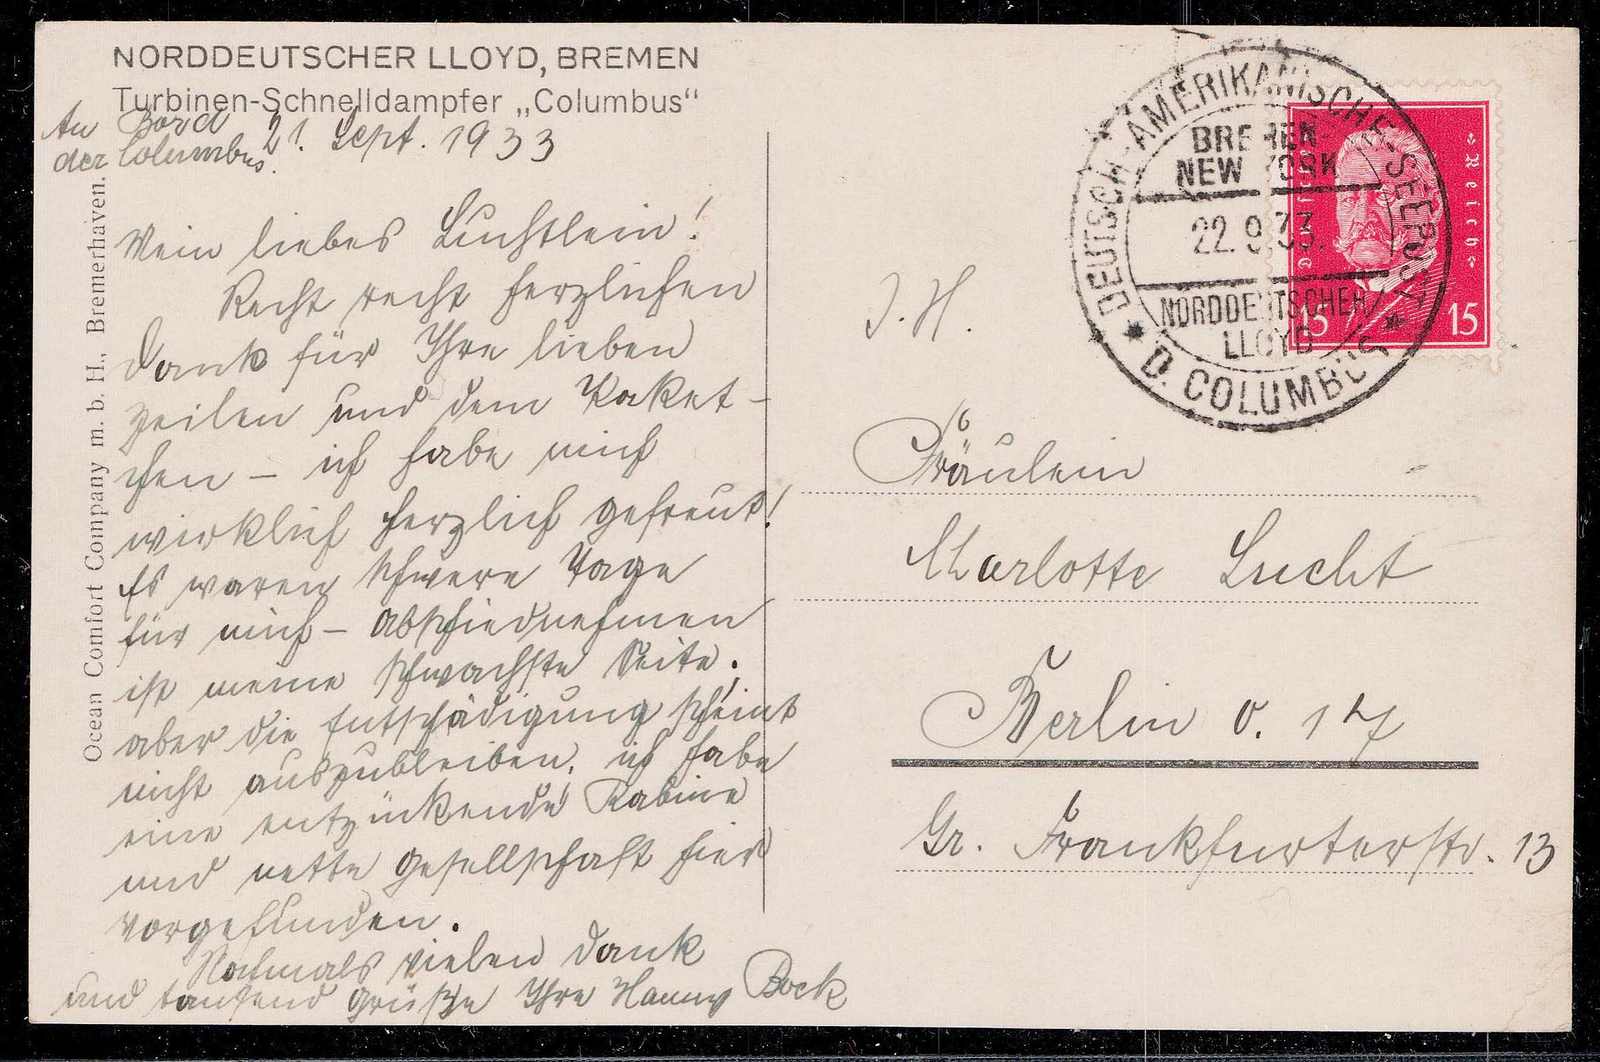 NORDDEUTSCHER LLOYD, BREMEN
Turbinen-Schnelldampfer „Columbus“
An Bord
der Columbus. 21. Sept. 1933
Mein liebes Luchtlein!
Recht recht herzlichen
Dank für Ihre lieben
Zeilen und dem Paket-
chen – ich habe mich
wirklich herzlich gefreut!
Es waren schwere Tage
für mich – Abschiednehmen
ist meine schwachste Seite.
aber die Entschädigung scheint
nicht auszubleiben, ich habe
eine entzückende Kabine
und nette Gesellschaft hier
vorgefunden.
Nochmals vielen Dank
und tausend Grüße Ihre Hanny Bock
Ocean Comfort Company m. b. H., Bremerhaven.
DEUTSCH-AMERIKANISCHE SEEPOST
BREMEN
NEW YORK
22.9.33.
NORDDEUTSCHER
LLOYD
* D. COLUMBUS *
Deutsches Reich
15 15
J. H.
Fräulein
Marlotte Lucht
Berlin O. 17
Gr. Frankfurterstr. 13